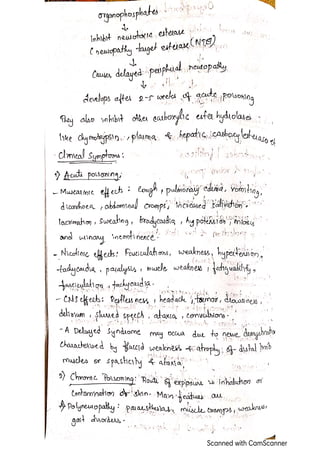 organophosphates
↓
Inhibit neurotoxic esterase
(neuropathy target esterase (NTE)
↓
Causes delayed peripheral neuropathy
↓
develops after 2-5 weeks of acute poisoning
They also inhibit other carboxylic ester hydrolases
like chymotrypsin, plasma & hepatic carboxylesterases
Clinical Symptoms:
1) Acute poisoning:
- Muscarinic effects: Cough, pulmonary edema, vomiting,
diarrhoea, abdominal cramps, increased salivation,
lacrimation, sweating, bradycardia, hypotension, miosis
and urinary incontinence.
- Nicotinic effects: Fasciculations, weakness, hypertension,
tachycardia, paralysis, muscle weakness, fatiguability,
fasciculation, tachycardia.
- CNS effects: Restlessness, headach, tremor, drowsiness,
delirium, slurred speech, ataxia, convulsions.
- A Delayed Syndrome may occur due to nerve
characterised by flaccid weakness & atrophy of distal limb
muscles or spasticity & ataxia.
2) Chronic Poisoning: Route of exposure is inhalation or
contamination of skin. Main features are
Polyneuropathy: paraesthesias, muscle cramps, weakness,
gait disorders.
Scanned with CamScanner